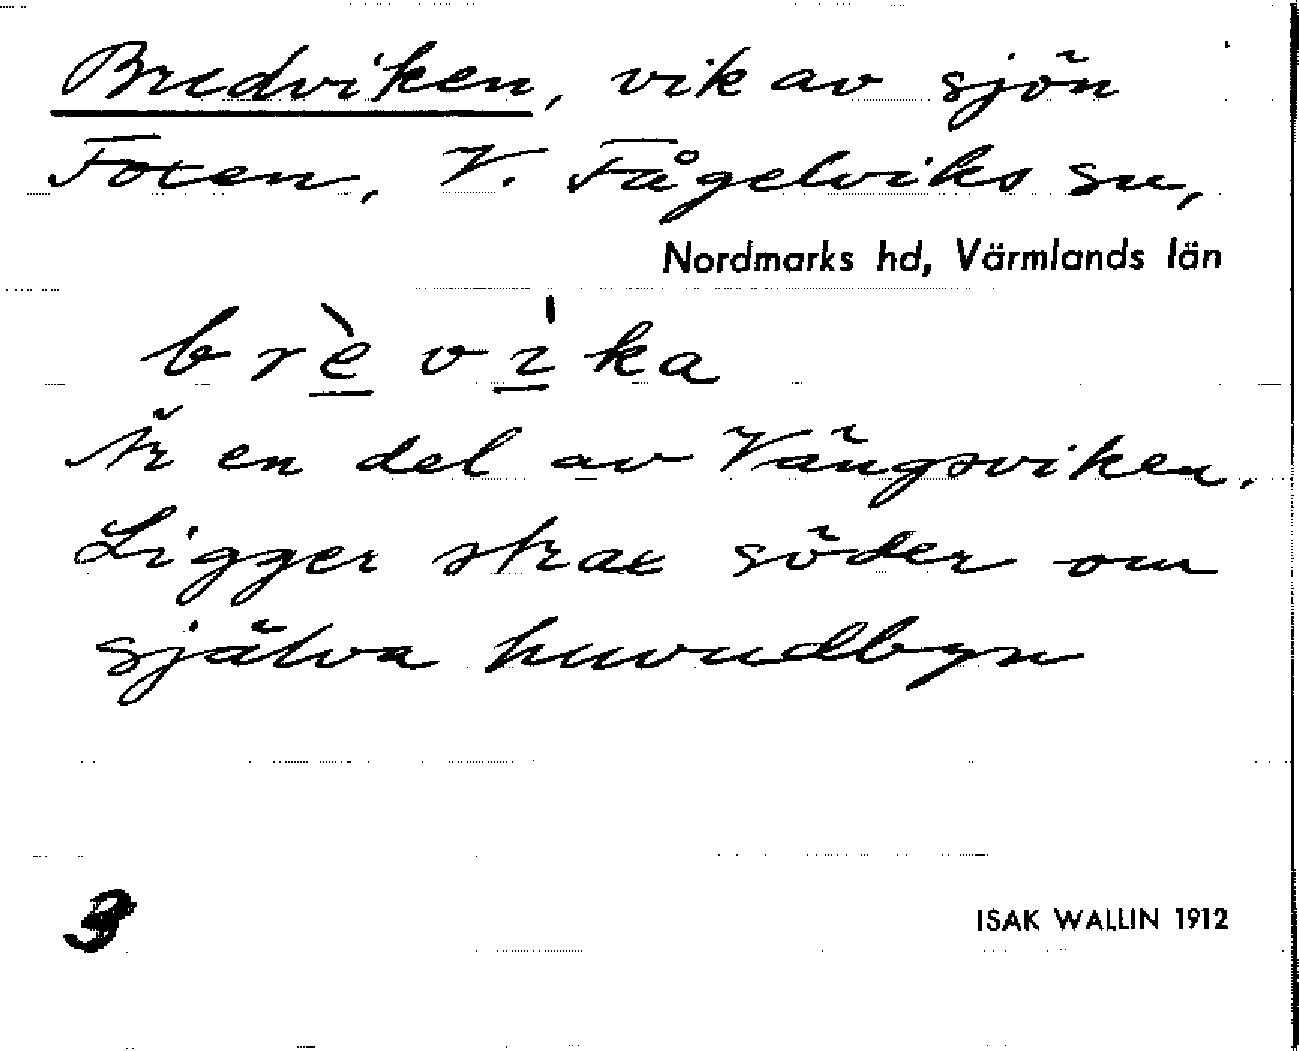 Bredviken, vik av sjön
Foxen, V. Fågelviks sn,
Nordmarks hd, Värmlands län
brè vı̍ ka
Är en del av Vängsviken.
Ligger strax söder om
själva huvudbyn
3
ISAK WALLIN 1912